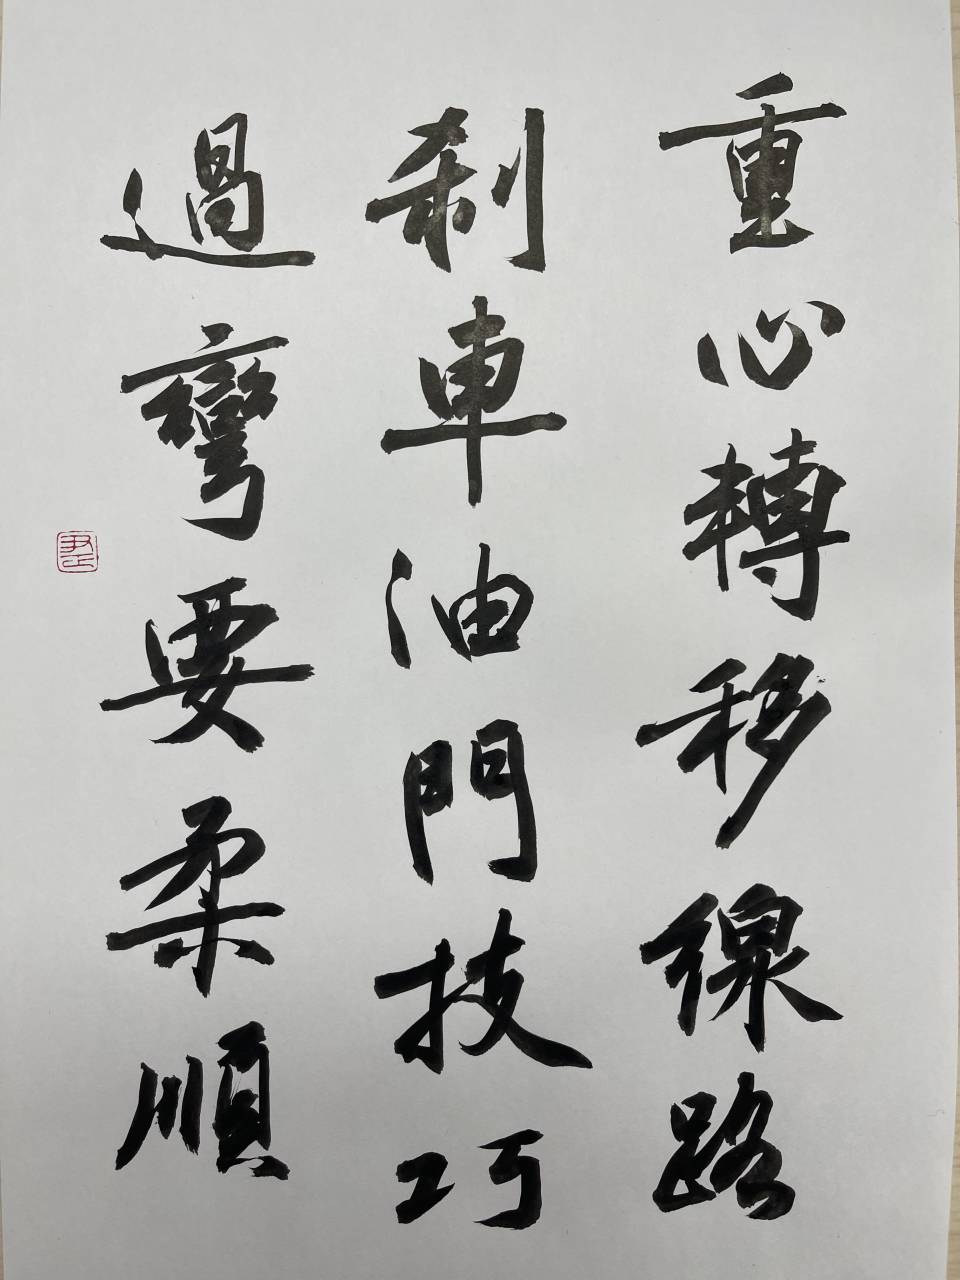 重心轉移線路
刹車油門技巧
過彎要柔順
尹正